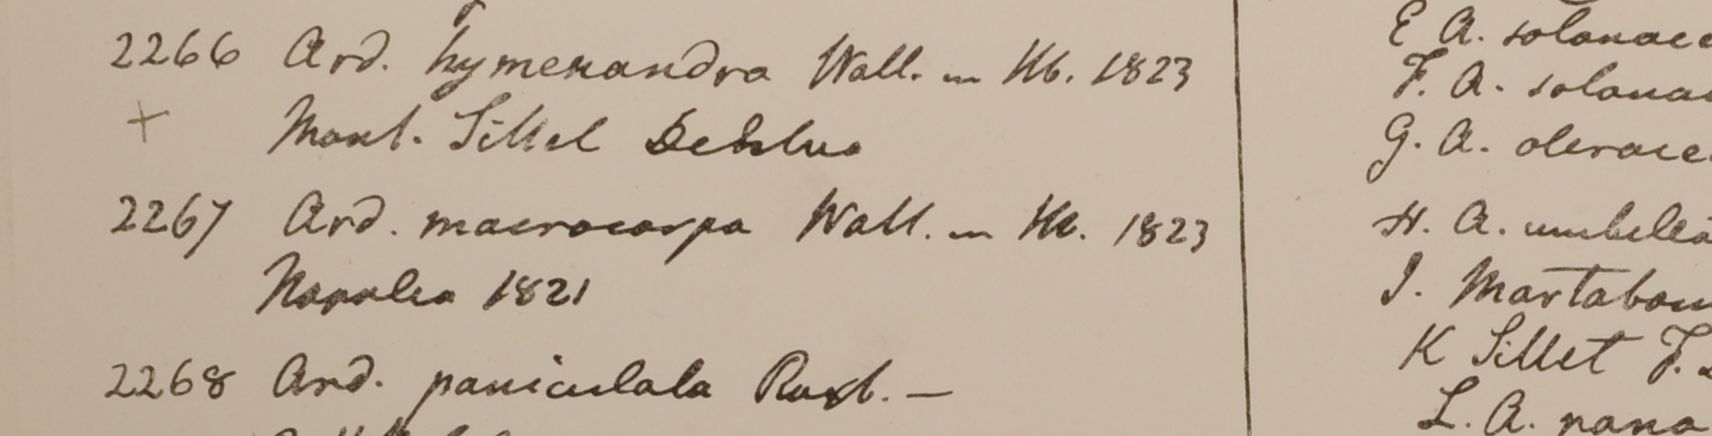 2266 Ard. hymenandra Wall. in Hb. 1823
+ Mont. Sillet
2267 Ard. macrocarpa Wall. in Hb. 1823
Napalia 1821
2268 Ard. paniculata Roxb. —
E A. solanace
F. A. solanac
G. A. olerace
H. A. umbella
I. Martaban
K Sillet F.
L. A. nana